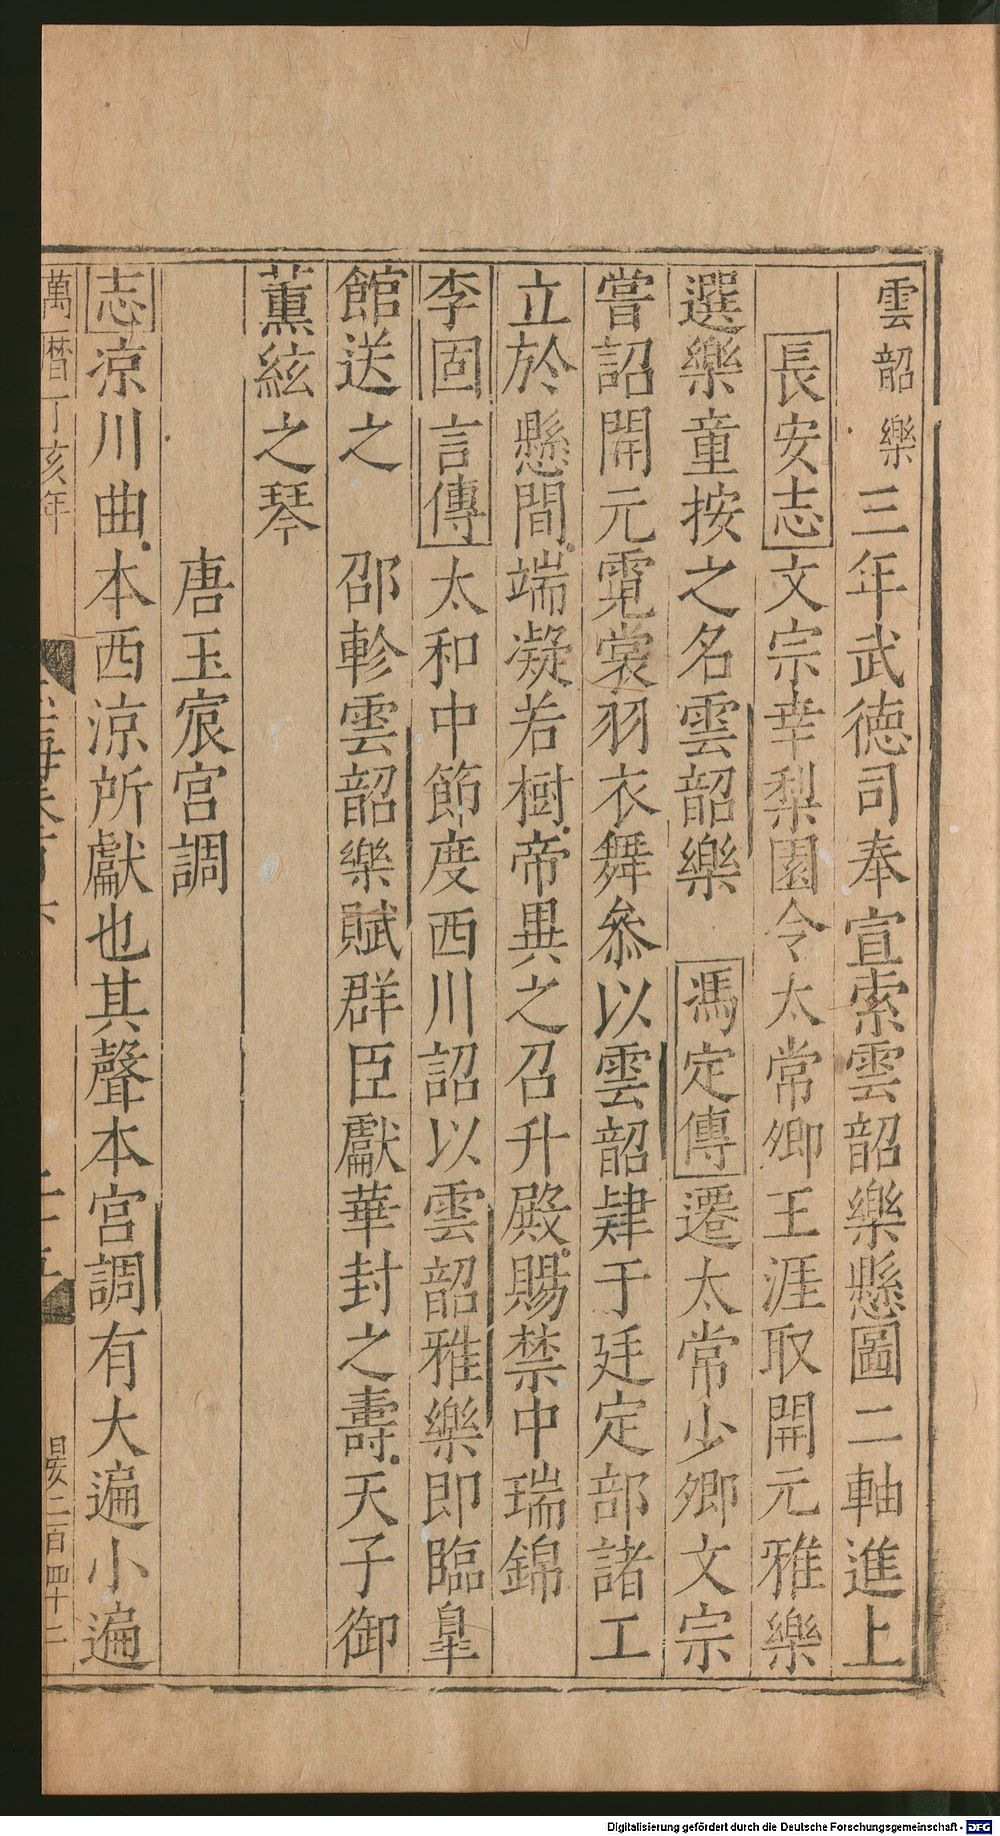 雲韶樂 三年武德司奉宣索雲韶樂懸圖二軸進上
長安志文宗幸梨園令太常卿王涯取開元雅樂
選樂童按之名雲韶樂 馮定傳遷太常少卿文宗
嘗詔開元霓裳羽衣舞叅以雲韶肄于廷定部諸工
立於懸間端凝若樹帝異之召升殿賜禁中瑞錦
李固言傳太和中節度西川詔以雲韶雅樂即臨皐
館送之 邵軫雲韶樂賦群臣獻華封之壽天子御
薰絃之琴
唐玉宸宮調
志凉川曲本西涼所獻也其聲本宮調有大遍小遍
萬曆丁亥年
晏二百四十二
Digitalisierung gefördert durch die Deutsche Forschungsgemeinschaft - DFG